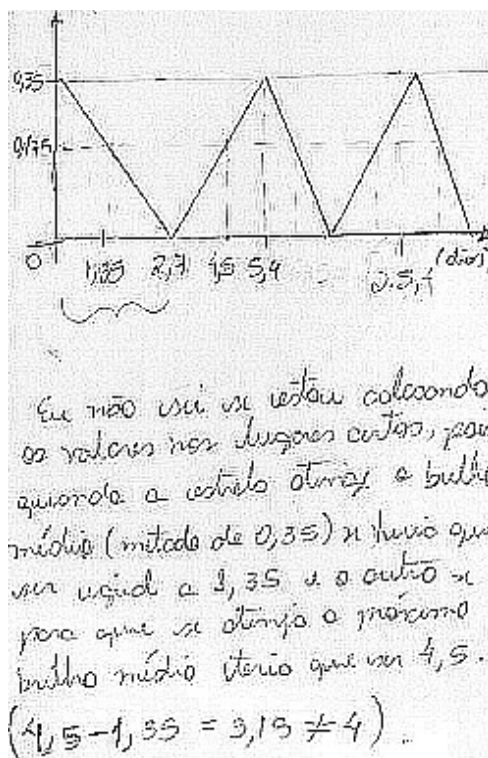 0,35
0,175
0 1,35 2,7 4,5 5,4 2.5,4 (dias)
Eu não sei se estou colocando
os valores nos lugares certos, pois
quando a estrela atinge o brilho
médio (metade de 0,35) x teria que
ser igual a 1,35 e o outro x
para que se atinja o próximo
brilho médio teria que ser 4,5.
(4,5-1,35 = 3,15 ≠ 4).